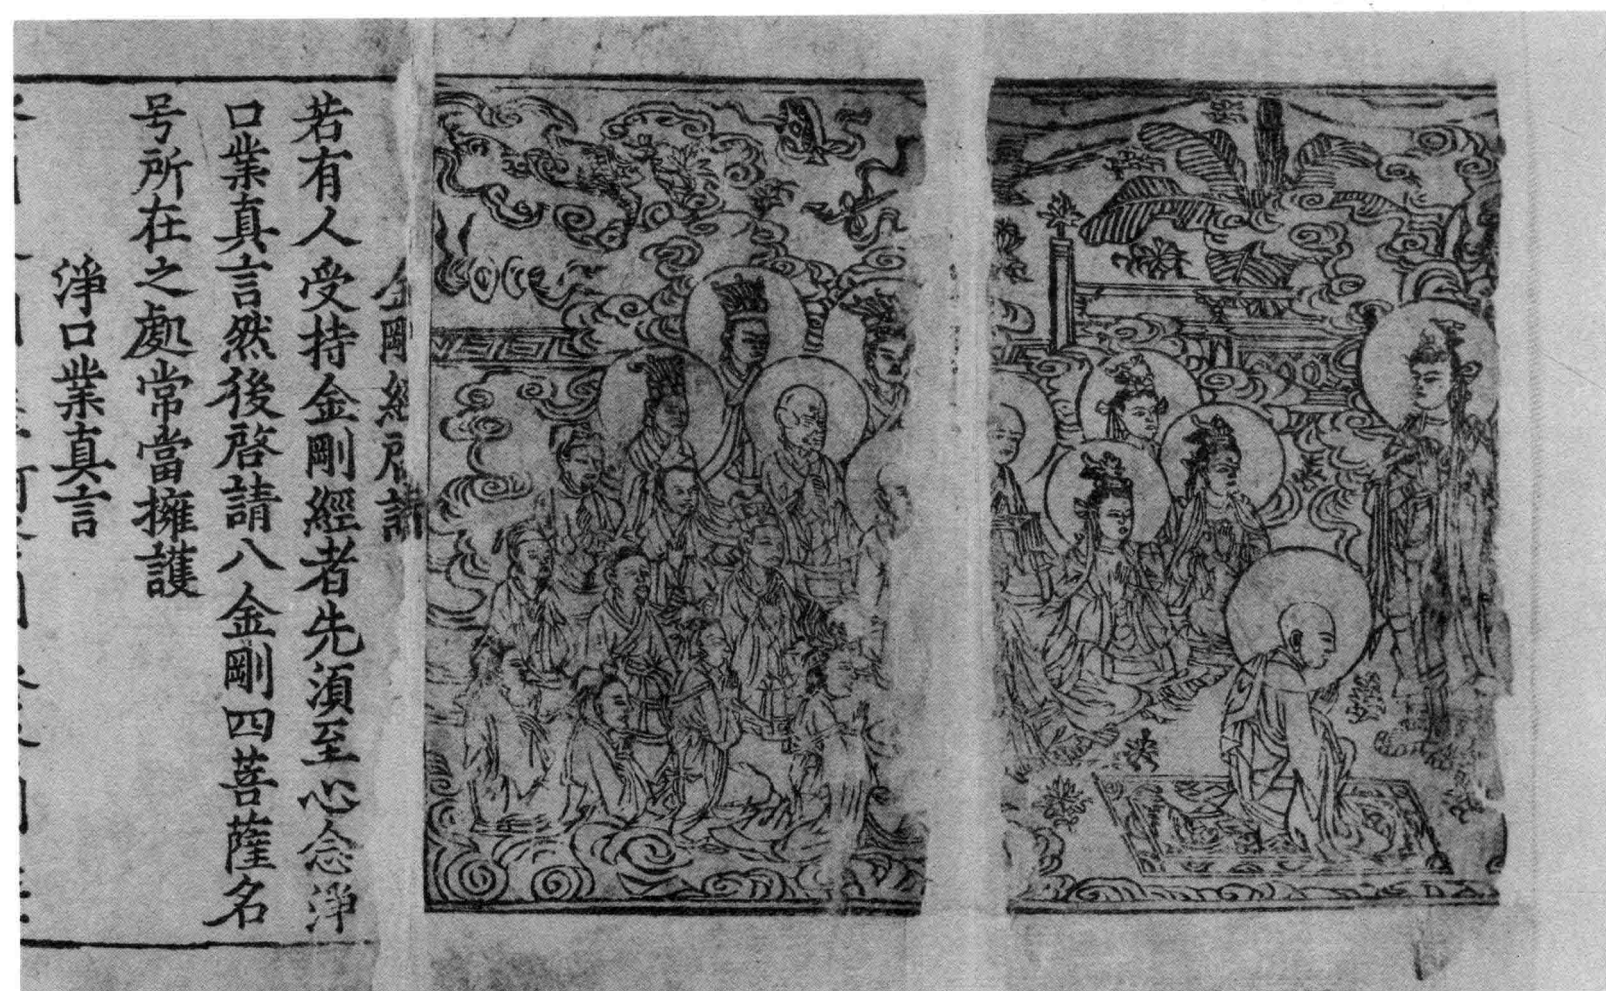 金剛經啓請
若有人受持金剛經者先須至心念淨
口業真言然後啓請八金剛四菩薩名
号所在之處常當擁護
淨口業真言